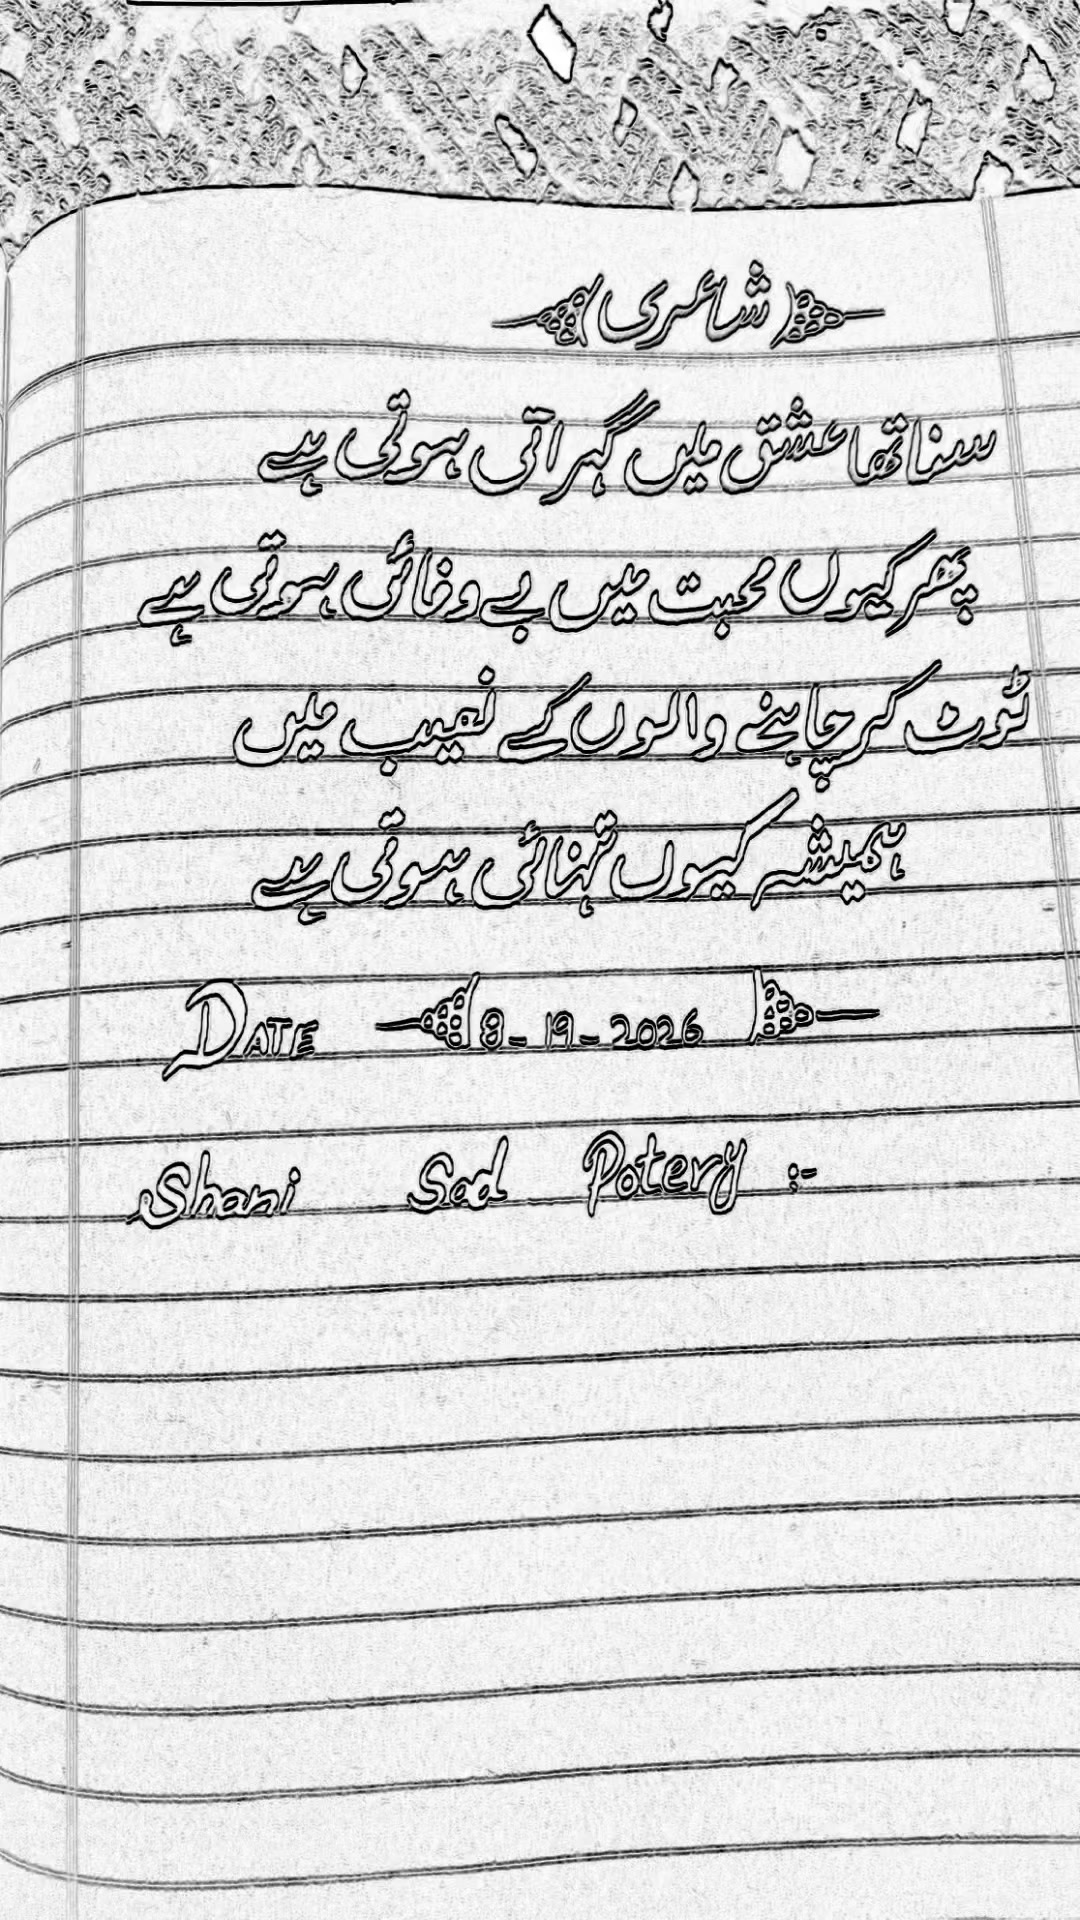 شاعری
سنا تھا عشق میں گہرائی ہوتی ہے
پھر کیوں محبت میں بے وفائی ہوتی ہے
ٹوٹ کر چاہنے والوں کے نصیب میں
ہمیشہ کیوں تنہائی ہوتی ہے
DATE 8-19-2026
Shani Sad Potery :-